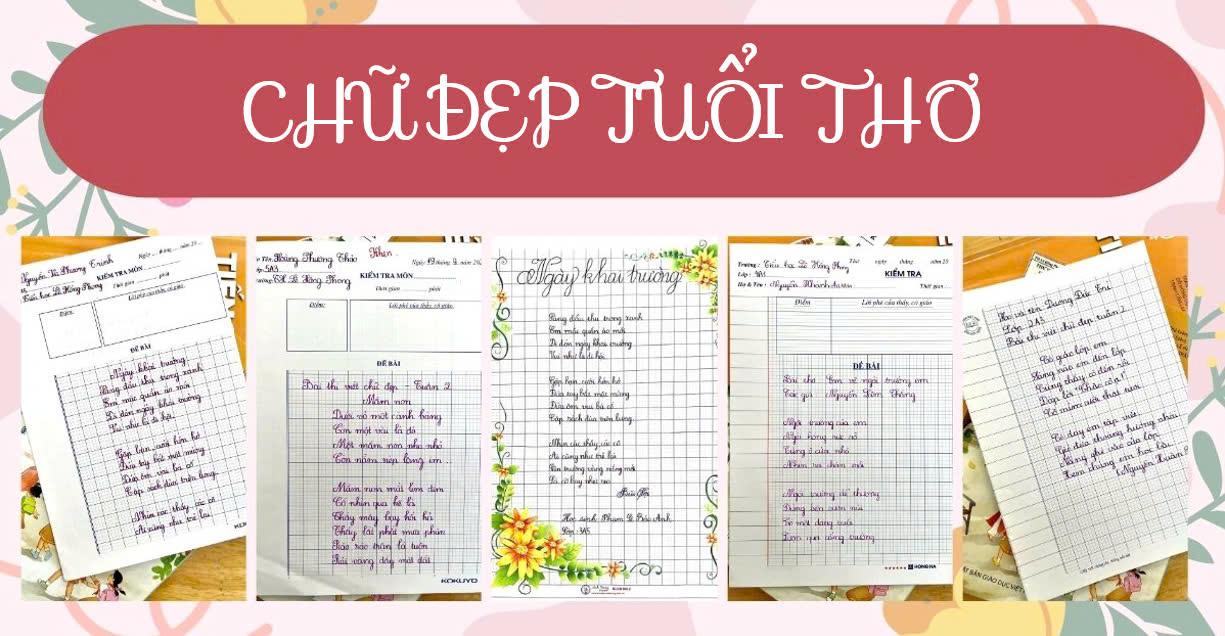 CHỮ ĐẸP TUỔI THƠ
Ngày ... tháng ... năm 20
KIỂM TRA MÔN
Tiểu học Lê Hồng Phong
Thời gian phút
Điểm: Lời phê của thầy, cô giáo
ĐỀ BÀI
Ngày khai trường
Sáng đầu thu trong xanh
Em mặc quần áo mới
Đi đón ngày khai trường
Vui như là đi hội.
Gặp bạn, cười hớn hở
Đứa tay bắt mặt mừng
Đứa ôm vai bá cổ
Cặp sách đùa trên lưng.
Nhìn các thầy, các cô
Ai cũng như trẻ lại
Hoàng Phương Thảo
Lớp: 5A3
Trường: TH Lê Hồng Phong
KIỂM TRA MÔN
Thời gian phút
Điểm: Lời phê của thầy, cô giáo
ĐỀ BÀI
Bài thi viết chữ đẹp Tuần 2
Mầm non
Dưới vỏ một cành bàng
Còn một vài lá đỏ
Một mầm non nho nhỏ
Còn nằm nép lặng im.
Mầm non mắt lim dim
Cố nhìn qua kẽ lá
Thấy mây bay hối hả
Thấy lất phất mưa phùn
Rào rào trận lá tuôn
Rải vàng đầy mặt đất
KOKUYO
Ngày khai trường
Sáng đầu thu trong xanh
Em mặc quần áo mới
Đi đón ngày khai trường
Vui như là đi hội.
Gặp bạn, cười hớn hở
Đứa tay bắt mặt mừng
Đứa ôm vai bá cổ
Cặp sách đùa trên lưng.
Nhìn các thầy, các cô
Ai cũng như trẻ lại
Sân trường vàng nắng mới
Lá cờ bay như reo
Học sinh: Phạm Lê Bảo Anh
Lớp: 3A5
Trường: Tiểu học Lê Hồng Phong
KIỂM TRA
Họ & Tên: Nguyễn Khánh
Thời gian
Điểm Lời phê của thầy, cô giáo
ĐỀ BÀI
Bài thơ Em vẽ ngôi trường em
Tác giả Nguyễn Lãm Thắng
Ngôi trường của em
Ngói hồng rực rỡ
Từng ô cửa nhỏ
Nhìn ra chân mây
Ngôi trường dễ thương
Đứng bên sườn núi
HONG HA
Họ và tên Dương Đức Trí
Lớp 2A5
Bài thi viết chữ đẹp tuần 2
Cô giáo lớp em
Sáng nào em đến lớp
Cũng thấy cô đến rồi
Đáp lời "Chào cô ạ!"
Cô mỉm cười thật tươi
Cô dạy em tập viết
Gió đưa thoảng hương nhài
Nắng ghé vào cửa lớp
Xem chúng em học bài.